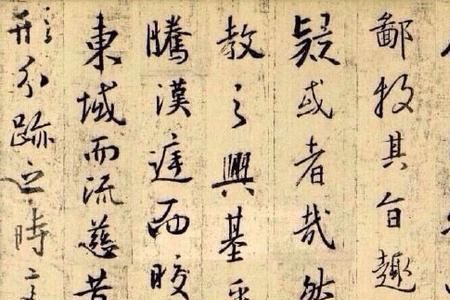 鄙投其旨趣
疑或者哉然
教之興基乎
騰漢庭而皎
東域而流慈昔
形分跡之時言